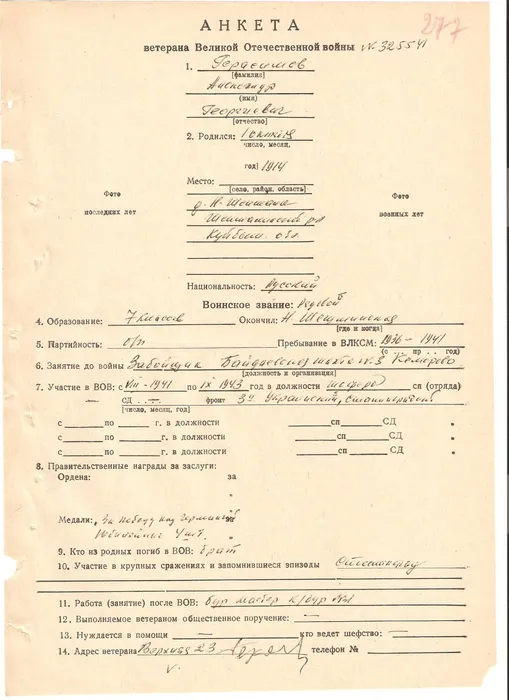 АНКЕТА
277
ветерана Великой Отечественной войны № 325541
1. Герасимов
[фамилия]
Александр
(имя)
Георгиевич
[отчество]
2. Родился: 1 октября
число, месяц,
год) 1914
Место:
[село, район, область]
Фото
последних лет
Фото
военных лет
д. Н-Шентала
Шенталинский р-н
Куйбыш. обл.
Национальность: Русский
Воинское звание: Рядовой
4. Образование: 7 классов Окончил: Н Шенталинская
[где и когда]
5. Партийность: б/п Пребывание в ВЛКСМ: 1936 - 1941
(с .. пр .. год)
6. Занятие до войны Забойщик Байдаевской шахты №3 Кемерово
[должность и организация]
7. Участие в ВОВ: с VIII-1941 по IX 1943 год в должности шофера сп (отряда)
— СД . . — фронт 3й Украинский, Сталинградский
[число, месяц, год]
с по г. в должности сп СД "
с по г. в должности сп СД "
с по г. в должности сп СД "
8. Правительственные награды за заслуги:
Ордена: за
"
"
Медали: „За победу над Германией"
Юбилейных 4 шт.
9. Кто из родных погиб в ВОВ: брат
10. Участие в крупных сражениях и запомнившиеся эпизоды
11. Работа (занятие) после ВОВ: бур мастер к/бур №1
12. Выполняемое ветераном общественное поручение: —
13. Нуждается в помощи — кто ведет шефство: —
14. Адрес ветерана 23 телефон №